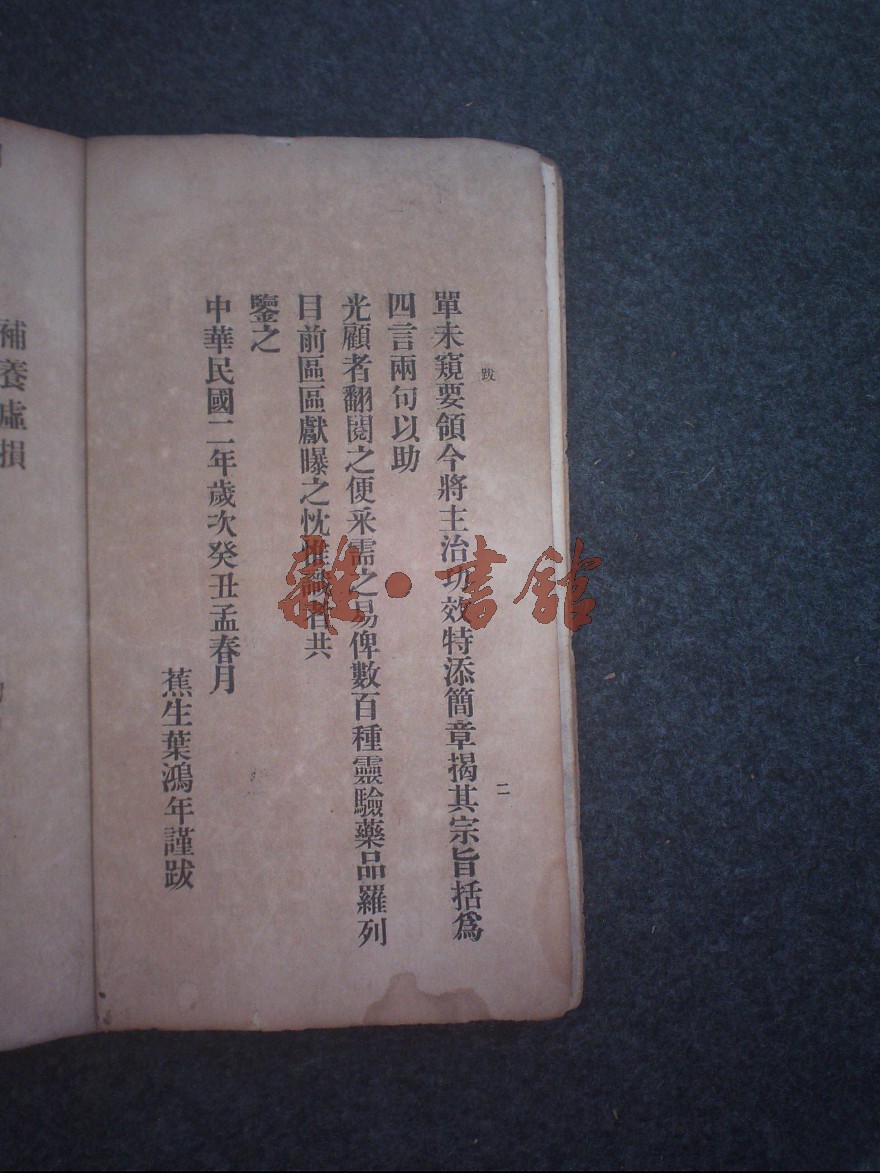 跋
二
單未窺要領今將主治功效特添簡章揭其宗旨括爲
四言兩句以助
光顧者翻閱之便采需之易俾數百種靈驗藥品羅列
目前區區獻曝之忱惟識者共
鑒之
中華民國二年歲次癸丑孟春月
蕉生葉鴻年謹跋
補養虛損
雜·書館